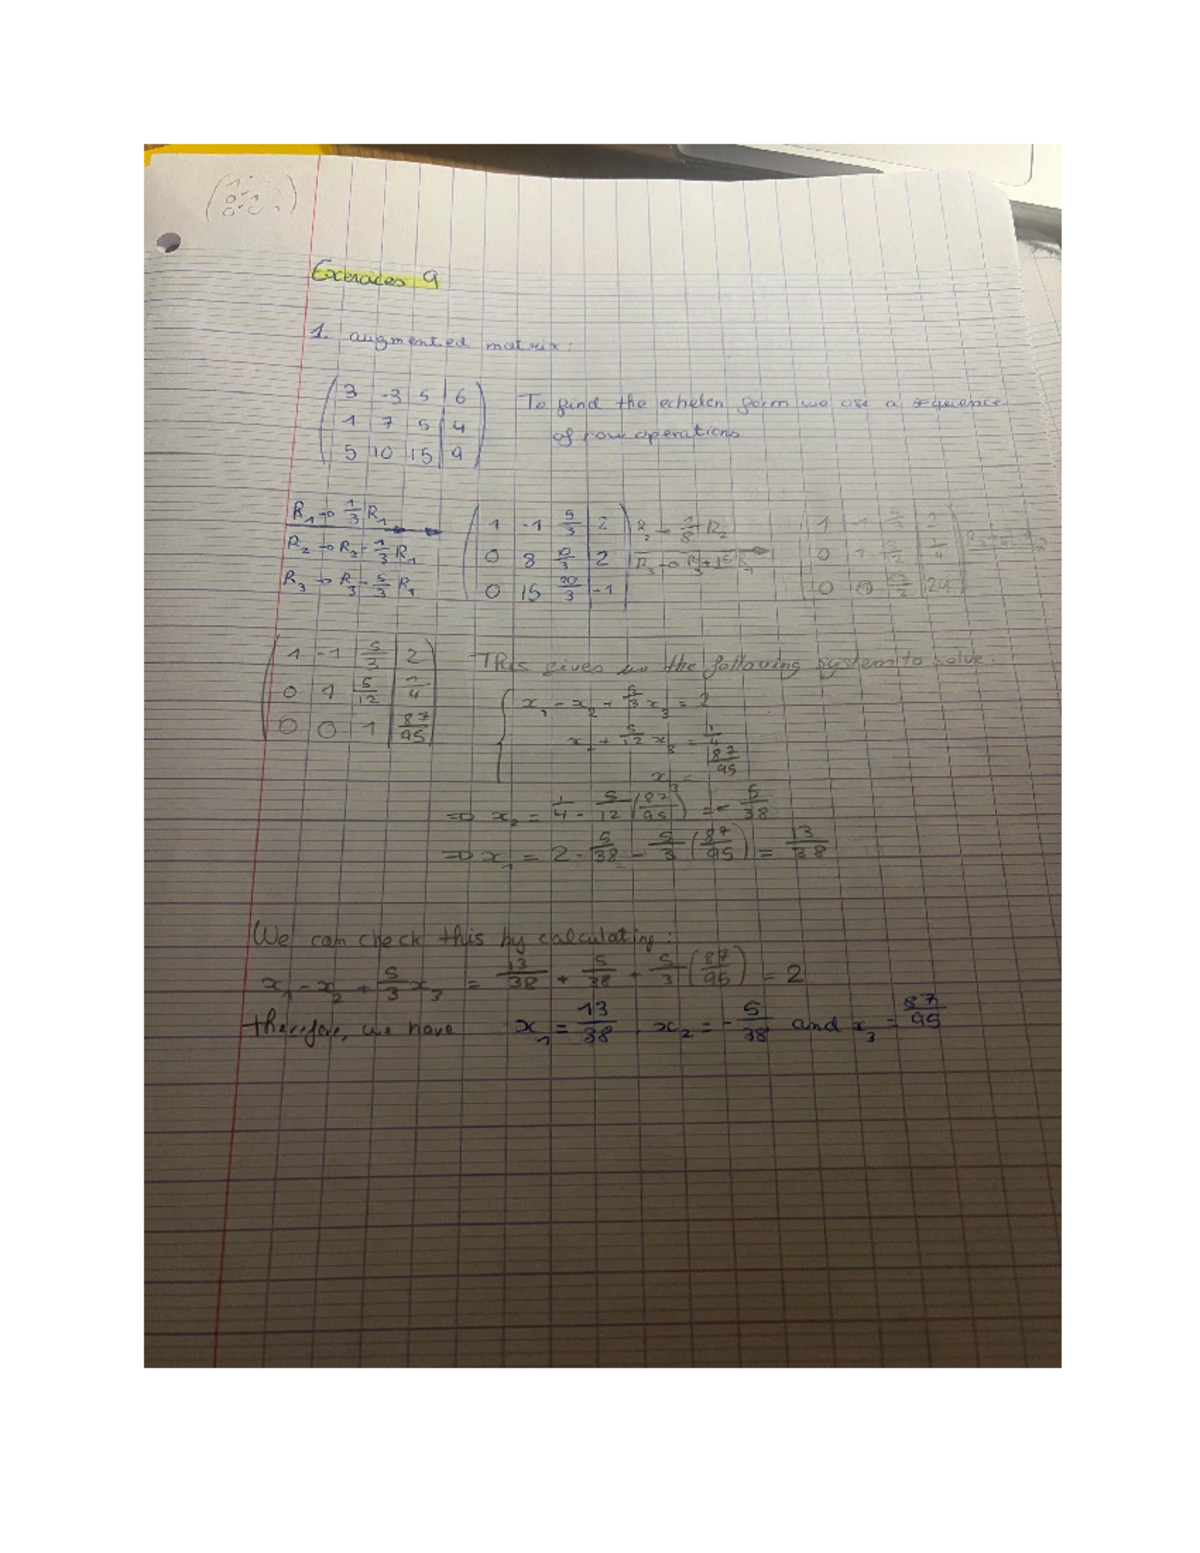 Exercices 9
1. augmented matrix:
3 -3 5 | 6
1 7 5 | 4
5 10 15 | 9
To find the echelon form we use a sequence
of row operations
R₁ → 1/3 R₁
R₂ → R₂ - 1/3 R₁
R₃ → R₃ - 5/3 R₁
1 -1 5/3 | 2
0 8 10/3 | 2
0 15 20/3 | -1
R₂ → 1/8 R₂
1 -1 5/3 | 2
0 1 5/12 | 1/4
0 0
1 -1 5/3 | 2
0 1 5/12 | 1/4
0 0 1 | 87/95
This gives us the following system to solve:
x₁ - x₂ + 5/3 x₃ = 2
x₂ + 5/12 x₃ = 1/4
x₃ = 87/95
=> x₂ = 1/4 - 5/12 (87/95) = - 5/38
=> x₁ = 2 - 5/38 - 5/3 (87/95) = 13/38
We can check this by calculating:
x₁ - x₂ + 5/3 x₃ = 13/38 + 5/38 + 5/3 (87/95) = 2
therefore, we have x₁ = 13/38 , x₂ = - 5/38 and x₃ = 87/95